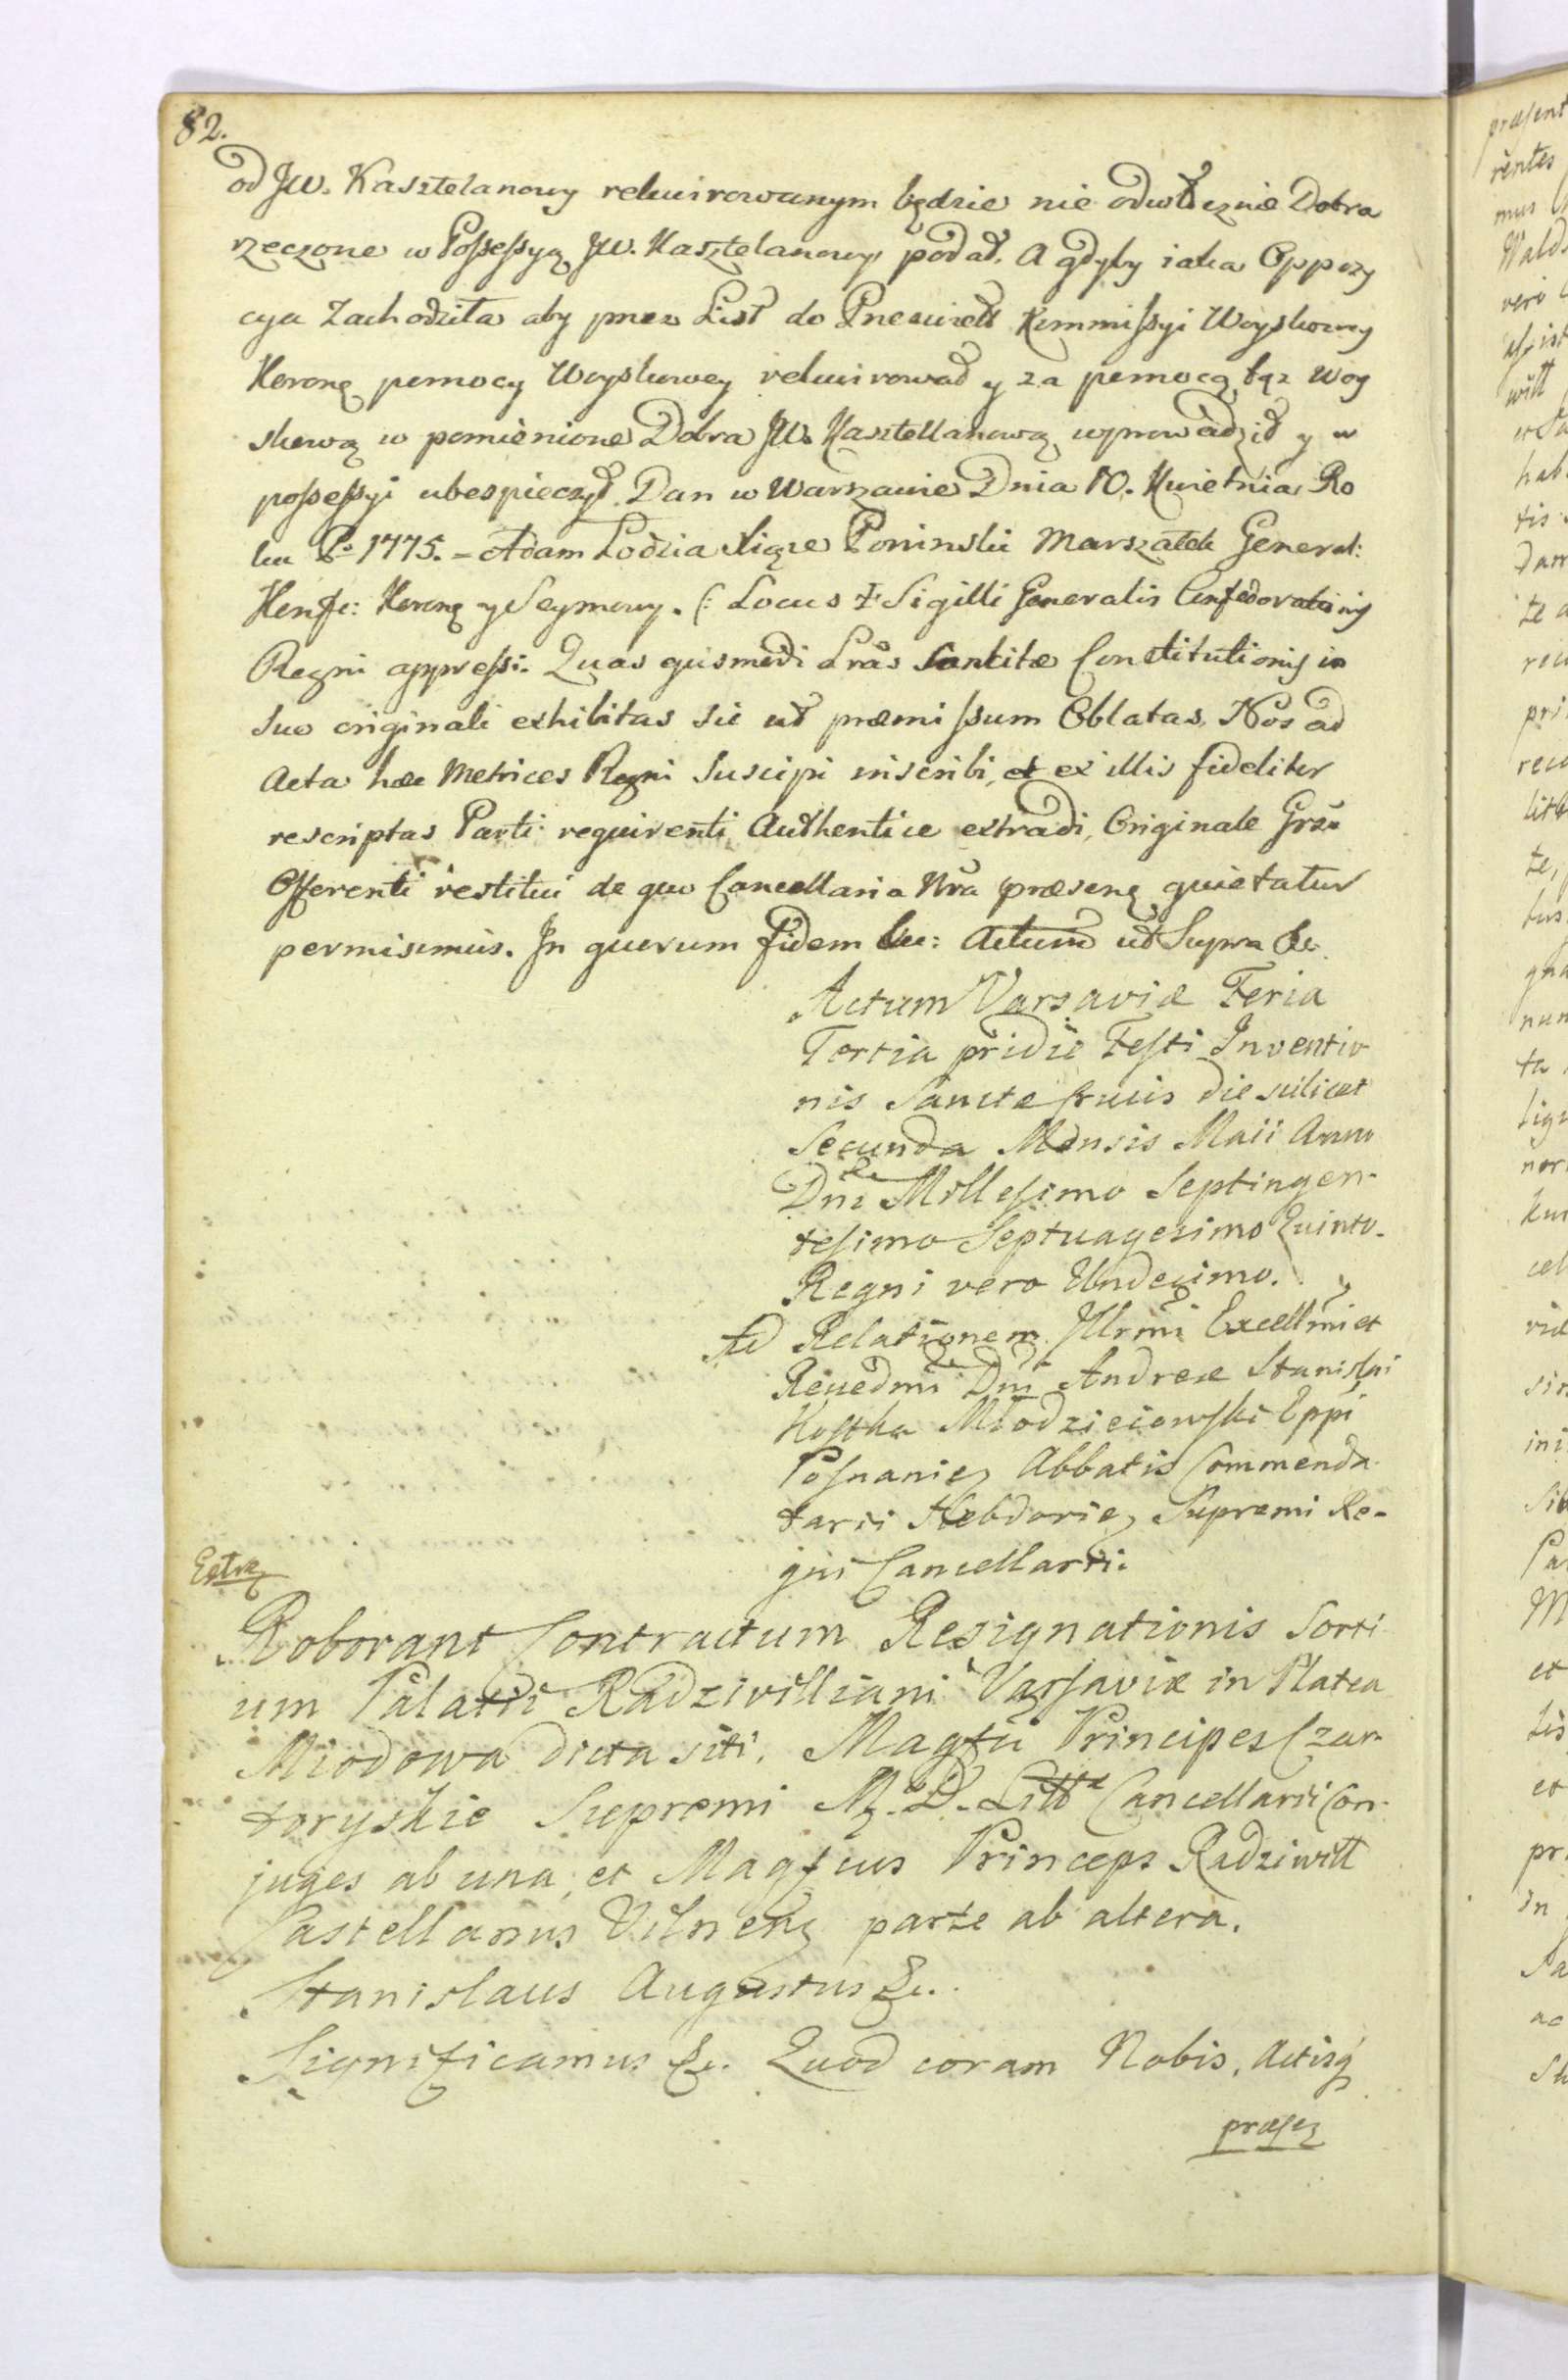 82.
od JW. Kasztelanowy rekwirowanym będzie nie odwłocznie Dobra
rzeczone w Possessyą JW. Kasztelanowy podał. A gdyby iaka Oppozy
cya Zachodziła aby przez List do Przeświet Kommissyi Woyskowey
Koronę pomocy Woyskowey rekwirował y za pomocą tąż Woy
skową w pomienione Dobra JW. Kasztellanową wprowadził y w
possessyi ubespieczył. Dan w Warszawie Dnia 10. Kwietnia Ro
ku P. 1775. = Adam Łodzia Xiąże Poninski Marszałek General:
Konfe: Koronę y Seymowy. (: Locus + Sigilli Generalis Confederationis
Regni appressi. Quas ejusmodi Lras Sancitæ Constitutionis in
suo originali exhibitas sic ut præmissum Oblatas, Nos ad
Acta hæc Metrices Regni suscipi inscribi, et ex illis fideliter
rescriptas Parti requirenti Authentice extradi, Originale
Offerenti restitui de quo Cancellaria Nra præsenę quietatur
permisimus. In quorum fidem &c: Actum ut Supra &c.
Actum Varsaviæ Feria
Tertia pridie Festi Inventio
nis Sanctæ Crucis die scilicet
Secunda Mensis Maii Anno
Dni Millesimo Septingen-
tesimo Septuagesimo Quinto.
Regni vero Undecimo.
Ad Relationem Illrmi Excellmi et
Reuedmi Dni Andreæ Stanislai
Kostka Młodzieiowski Eppi
Posnanię Abbatis Commenda
tarii Hebdovię, Supremi Re-
gni Cancellarii.
Extrę
Roborant Contractum Resignationis Sorti
um Palatii Radzivilliani Varsaviæ in Platea
Miodowa dicta siti. Magfci Principes Czar-
toryskie Supremi M. D. Litt Cancellarii Con-
juges ab una, et Magfcus Princeps Radziwiłł
Castellanus Vilnenę parte ab altera.
Stanislaus Augustus &c.
Significamus &c. Quod coram Nobis, Actisq
præsę